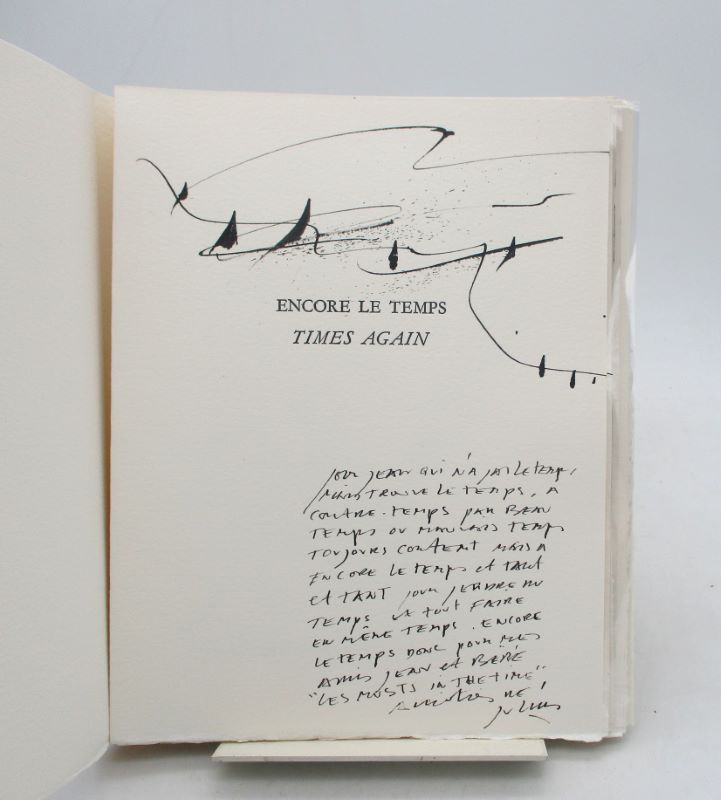 ENCORE LE TEMPS
TIMES AGAIN
pour JEAN qui N'A pas LE temps
mais TROUVE LE TEMPS, A
CONTRE-TEMPS PAR BEAU
TEMPS OU MAUVAIS TEMPS
TOUJOURS CONTENT MAIS A
ENCORE LE TEMPS et TANT
et TANT pour PERDRE DU
TEMPS et tout FAIRE
EN MÊME TEMPS. ENCORE
LE TEMPS DONC pour MES
AMIS JEAN et BÉBÉ
"LES MOSTS IN THE TIME"